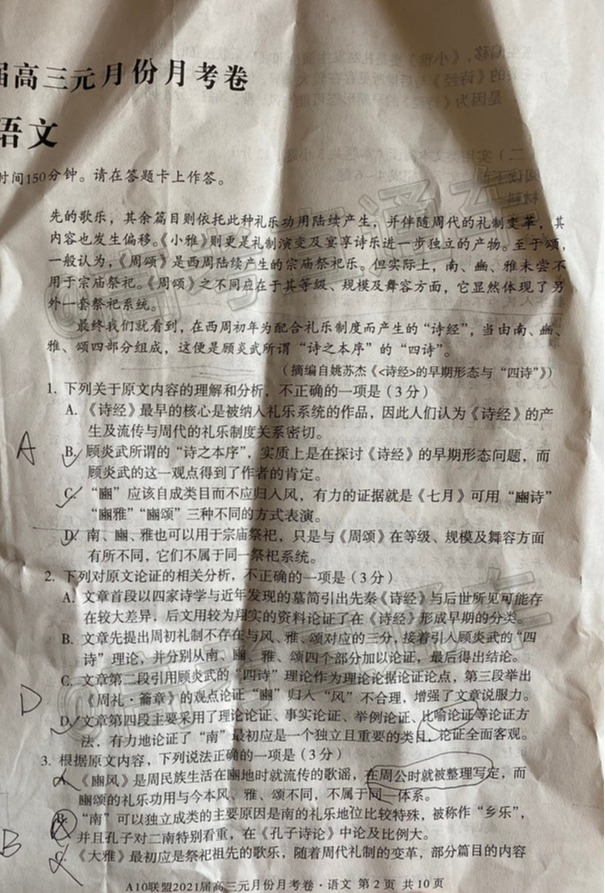 届高三元月份月考卷
语文
时间150分钟。请在答题卡上作答。
先的歌乐，其余篇目则依托此种礼乐功用陆续产生，并伴随周代的礼制变革，其
内容也发生偏移。《小雅》则更是礼制演变及宴享诗乐进一步独立的产物。至于颂，
一般认为，《周颂》是西周陆续产生的宗庙祭祀乐。但实际上，南、豳、雅未尝不
用于宗庙祭祀。《周颂》之不同应在于其等级、规模及舞容方面，它显然体现了另
外一套祭祀系统。
最终我们就看到，在西周初年为配合礼乐制度而产生的“诗经”，当由南、豳、
雅、颂四部分组成，这便是顾炎武所谓“诗之本序”的“四诗”。
（摘编自姚苏杰《<诗经>的早期形态与“四诗”》）
1. 下列关于原文内容的理解和分析，不正确的一项是（3分）
A.《诗经》最早的核心是被纳入礼乐系统的作品，因此人们认为《诗经》的产
生及流传与周代的礼乐制度关系密切。
A
B. 顾炎武所谓的“诗之本序”，实质上是在探讨《诗经》的早期形态问题，而
顾炎武的这一观点得到了作者的肯定。
C. “豳”应该自成类目而不应归入风，有力的证据就是《七月》可用“豳诗”
“豳雅”“豳颂”三种不同的方式表演。
D. 南、豳、雅也可以用于宗庙祭祀，只是与《周颂》在等级、规模及舞容方面
有所不同，它们不属于同一祭祀系统。
2. 下列对原文论证的相关分析，不正确的一项是（3分）
A. 文章首段以四家诗学与近年发现的墓简引出先秦《诗经》与后世所见可能存
在较大差异，后文用较为翔实的资料论证了在《诗经》形成早期的分类。
B. 文章先提出周初礼制不存在与风、雅、颂对应的三分，接着引入顾炎武的“四
诗”理论，并分别从南、豳、雅、颂四个部分加以论证，最后得出结论。
C. 文章第二段引用顾炎武的“四诗”理论作为理论论据论证论点，第三段举出
《周礼·籥章》的观点论证“豳”归入“风”不合理，增强了文章说服力。
D
D. 文章第四段主要采用了理论论证、事实论证、举例论证、比喻论证等论证方
法，有力地论证了“南”最初应是一个独立且重要的类目，论证全面客观。
3. 根据原文内容，下列说法正确的一项是（3分）
《豳风》是周民族生活在豳地时就流传的歌谣，在周公时就被整理写定，而
豳颂的礼乐功用与今本风、雅、颂不同，不属于同一体系。
“南”可以独立成类的主要原因是南的礼乐地位比较特殊，被称作“乡乐”，
并且孔子对二南特别看重，在《孔子诗论》中论及比例大。
B
《大雅》最初应是祭祀祖先的歌乐，随着周代礼制的变革，部分篇目的内容
A10联盟2021届高三元月份月考卷·语文 第2页 共10页